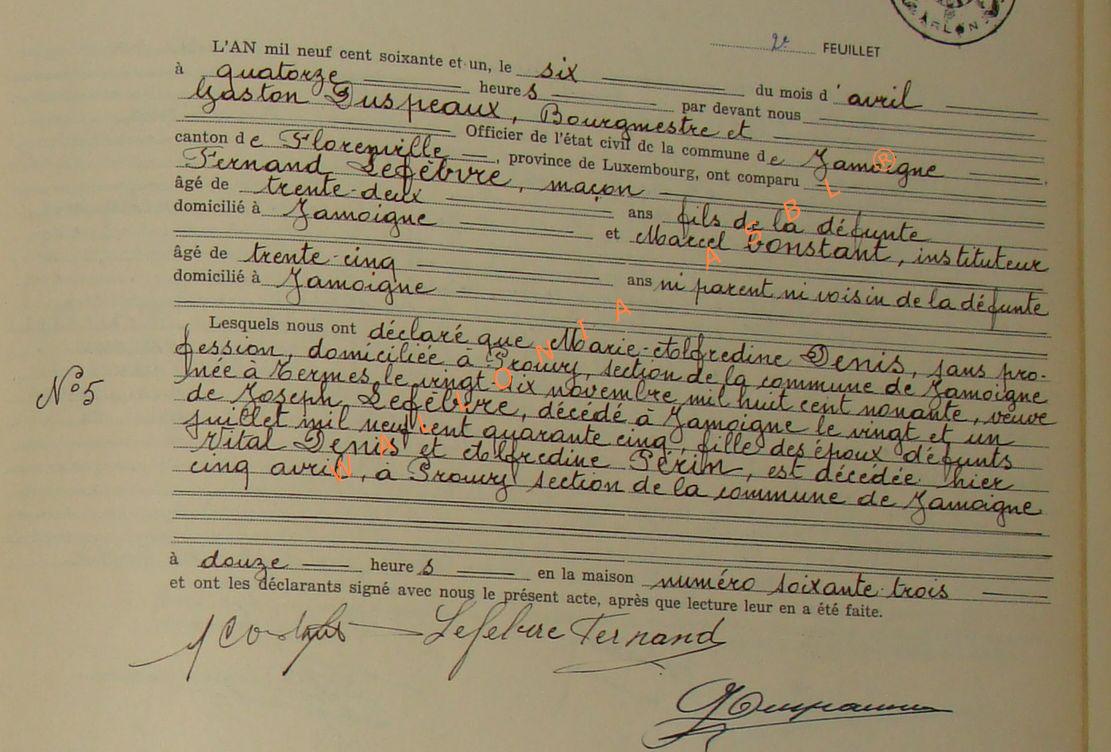 ARLON
2e FEUILLET
L'AN mil neuf cent soixante et un, le six du mois d'avril
à quatorze heures par devant nous
Gaston Duspeaux, Bourgmestre et
Officier de l'état civil de la commune de Jamoigne
canton de Florenville, province de Luxembourg, ont comparu
Fernand Lefèbvre, maçon
âgé de trente-deux ans fils de la défunte
domicilié à Jamoigne et Marcel Constant, instituteur
âgé de trente-cinq ans ni parent ni voisin de la défunte
domicilié à Jamoigne
Lesquels nous ont déclaré que Marie-Alfredine Denis, sans pro-
fession, domiciliée à Prouvy, section de la commune de Jamoigne
née à Termes le vingt-six novembre mil huit cent nonante, veuve
N°5
de Joseph Lefèbvre, décédé à Jamoigne le vingt et un
juillet mil neuf cent quarante cinq, fille des époux défunts
Vital Denis et Alfredine Périn, est décédée hier
cinq avril, à Prouvy section de la commune de Jamoigne
à douze heures en la maison numéro soixante-trois
et ont les déclarants signé avec nous le présent acte, après que lecture leur en a été faite.
Lefebvre Fernand
WALLONIA ASBL ®